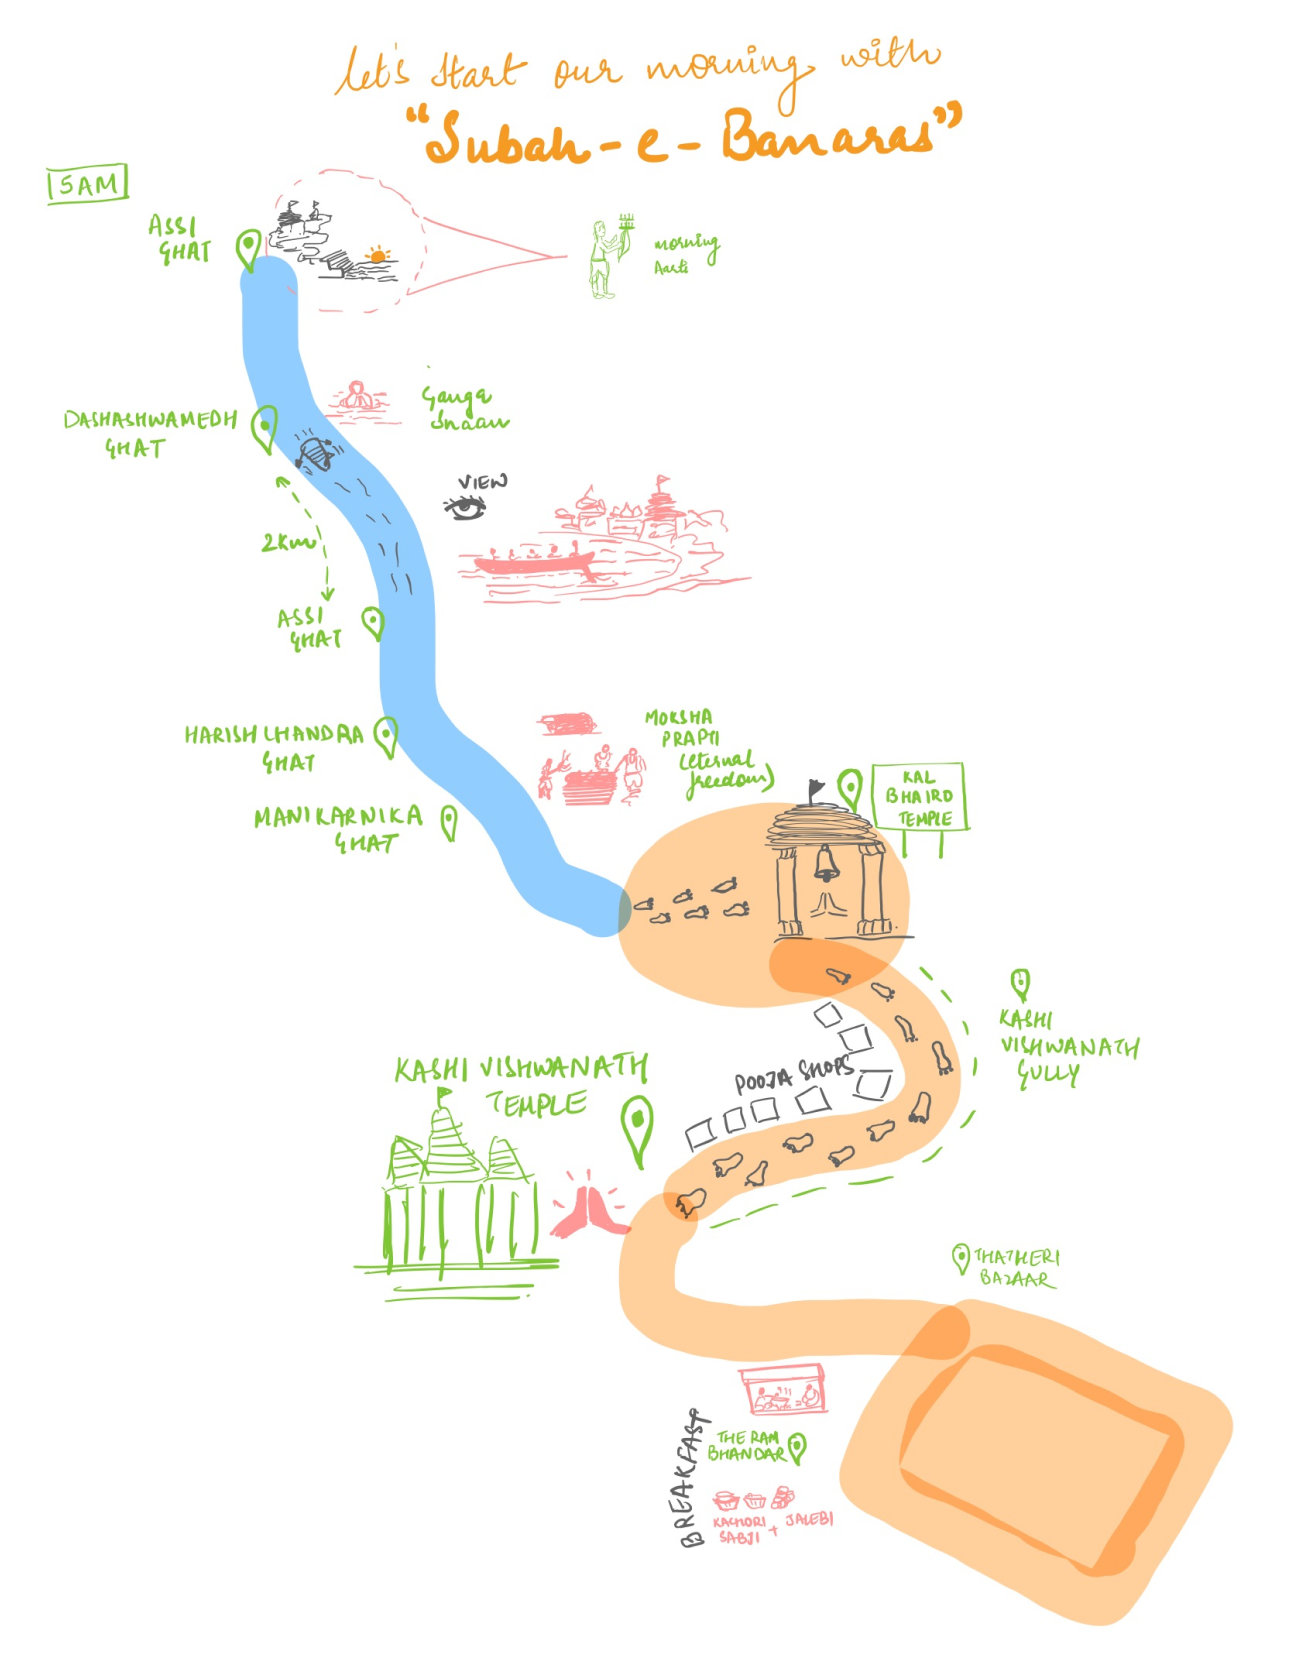 let's start our morning with
"Subah-e-Banaras"
5AM
ASSI
GHAT
morning
Aarti
Ganga
Snaan
DASHASHWAMEDH
GHAT
VIEW
2Km
ASSI
GHAT
MOKSHA
PRAPTI
(eternal
freedom)
HARISHCHANDRA
GHAT
MANIKARNIKA
GHAT
KAL
BHAIRO
TEMPLE
KASHI
VISHWANATH
GULLY
KASHI VISHWANATH
TEMPLE
POOJA SHOPS
THATHERI
BAZAAR
BREAKFAST
THE RAM
BHANDAR
KACHORI
SABJI + JALEBI